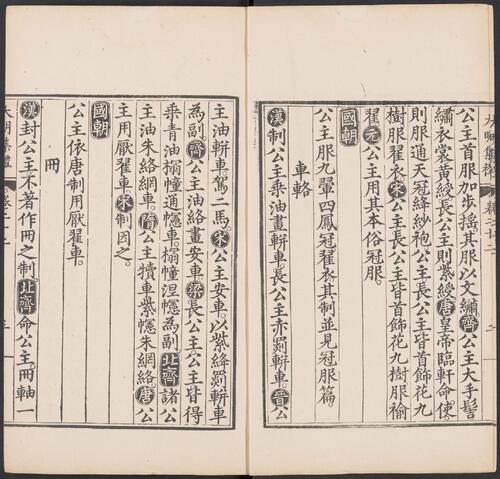 公主首服加步搖其服以文繡齊公主大手髻
繡衣裳黃綬長公主則紫綬唐皇帝臨軒命使
則服通天冠絳紗袍公主長公主皆首飾花九
樹服翟衣宋公主長公主皆首飾花九樹服褕
翟元公主用其本俗冠服
國朝
公主服九翬四鳳冠翟衣其制並見冠服篇
車輅
漢制公主乘油畫軿車長公主亦罽軿車晉公
主油軿車駕二馬宋公主安車以紫絳罽軿車
為副齊公主油絡畫安車梁長公主公主皆得
乘青油搨幢通幰車搨幢涅幰為副北齊諸公
主油朱絡網車隋公主犢車紫幰朱網絡唐公
主用厭翟車宋制因之
國朝
公主依唐制用厭翟車
冊
漢封公主不著作冊之制北齊命公主冊軸一